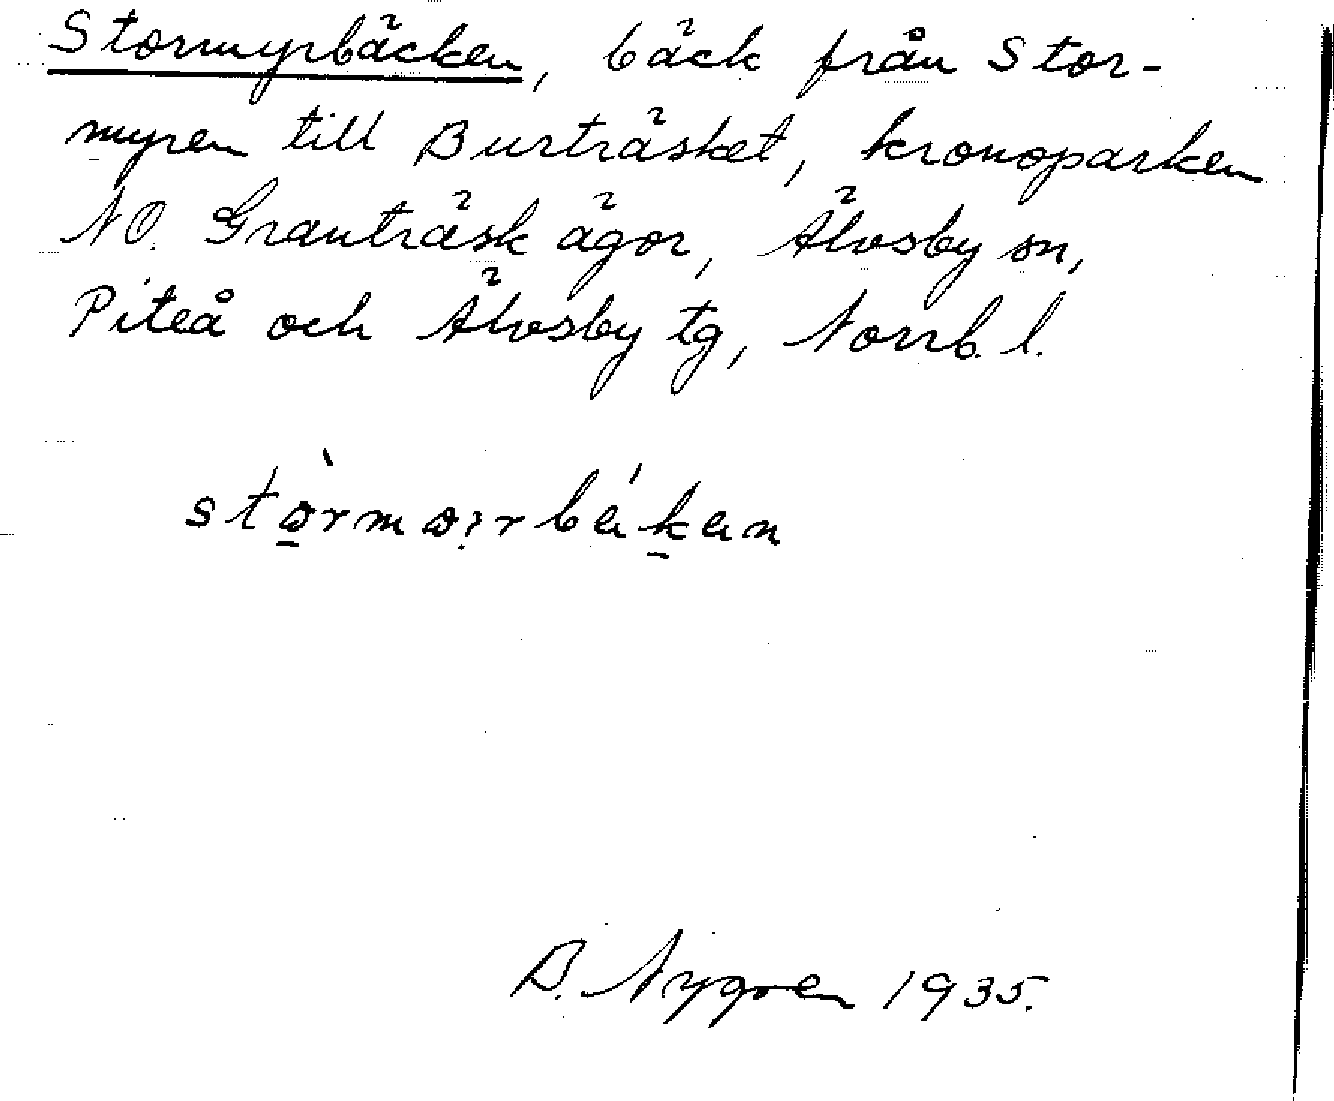 Stormyrbäcken, bäck från Stor-
myren till Burträsket, kronoparken
NO. Granträsk ägor, Älvsby sn,
Piteå och Älvsby tg, Norrb. l.
B. Nygren 1935.